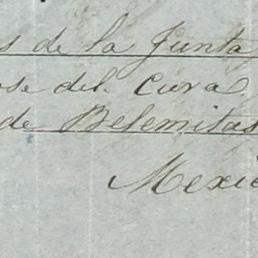 s de la Junta
ose del Cura
de Belemitas
Mexic